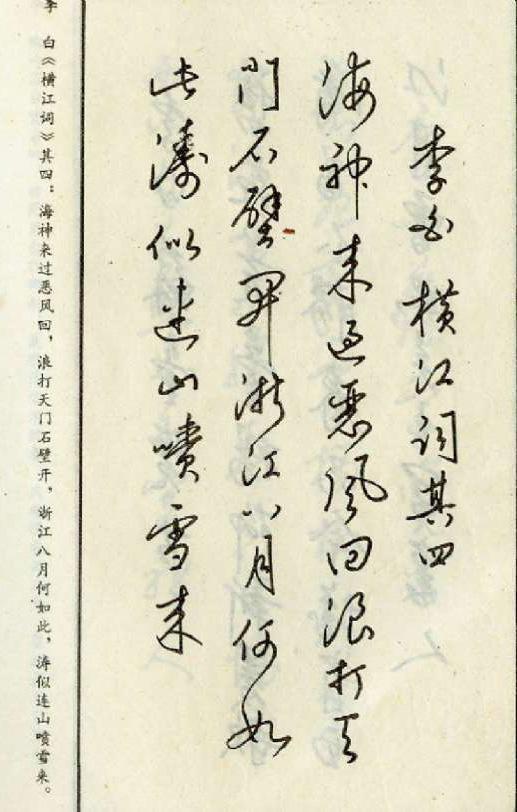 李白横江词其四
海神来过恶风回浪打天
门石壁开浙江八月何如
此涛似连山喷雪来
李白《横江词》其四：海神来过恶风回，浪打天门石壁开，浙江八月何如此，涛似连山喷雪来。